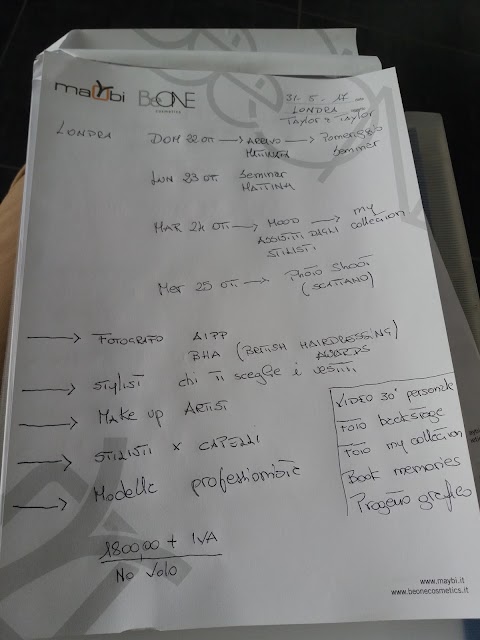 maYbi BeONE
cosmetics
31-5-17-
LONDRA
TAYLOR & TAYLOR
LONDRA
DOM 22 OTT → ARRIVO MATTINATA → POMERIGGIO Seminar
LUN 23 OTT Seminar MATTINA
MAR 24 OTT → MOOD → my collection
ASSISTITI DAGLI STILISTI
Mer 25 OTT → PHOTO SHOOT
(SCATTIAMO)
→ FOTOGRAFO AIPP
BHA (BRITISH HAIRDRESSING AWARDS)
→ STYLIST chi ti sceglie i vestiti
→ Make up ARTIST
→ STILISTI x CAPELLI
→ Modelle professioniste
VIDEO 30" personale
FOTO backstage
FOTO my collection
Book memories
Progetto grafico
1800,00 + IVA
No Volo
www.maybi.it
www.beonecosmetics.it